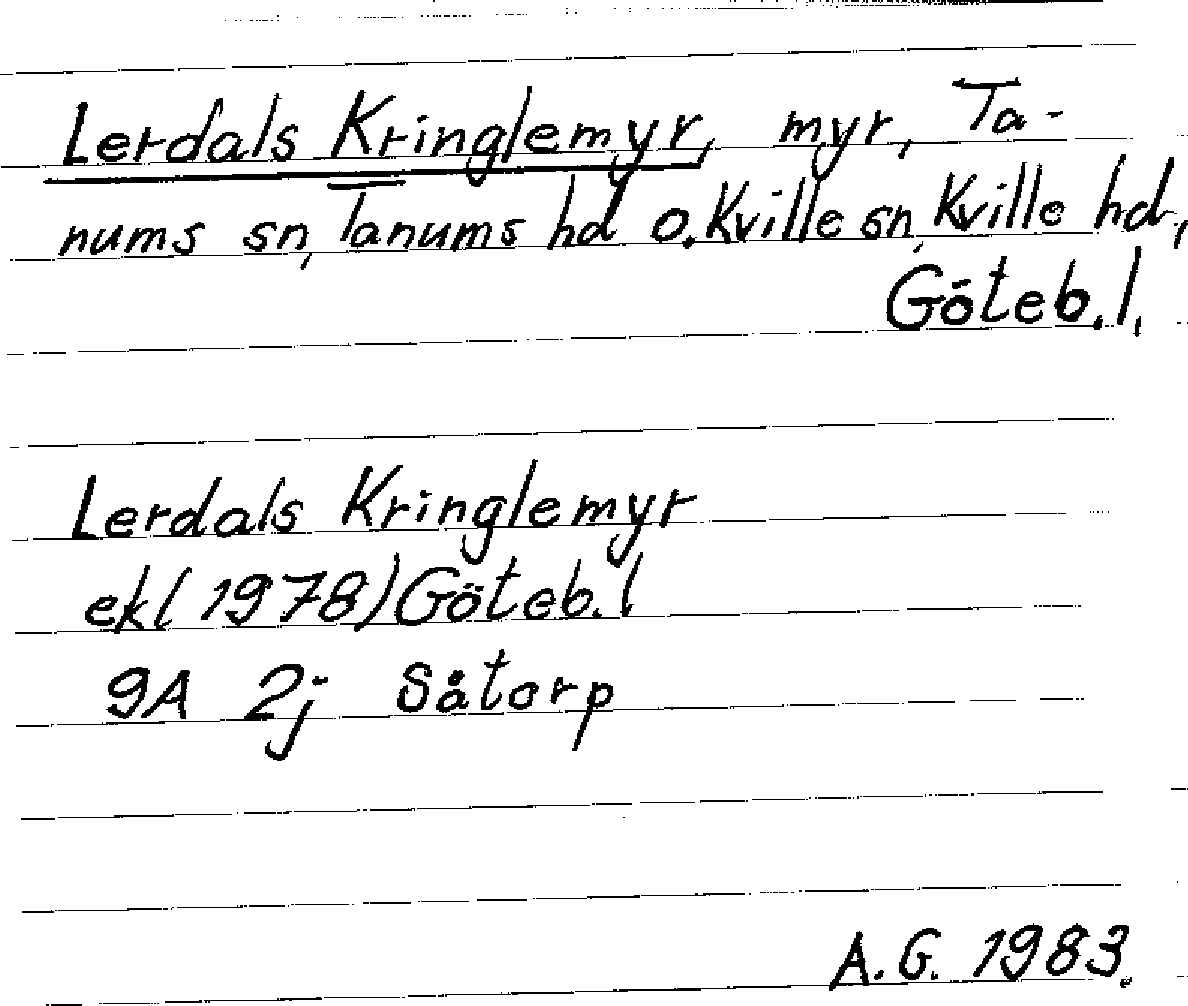 Lerdals Kringlemyr, myr, Ta-
nums sn, Tanums hd o. Kville sn, Kville hd,
Göteb. l.
Lerdals Kringlemyr
ekl 1978) Göteb. l
9A 2j Såtorp
A.G. 1983.